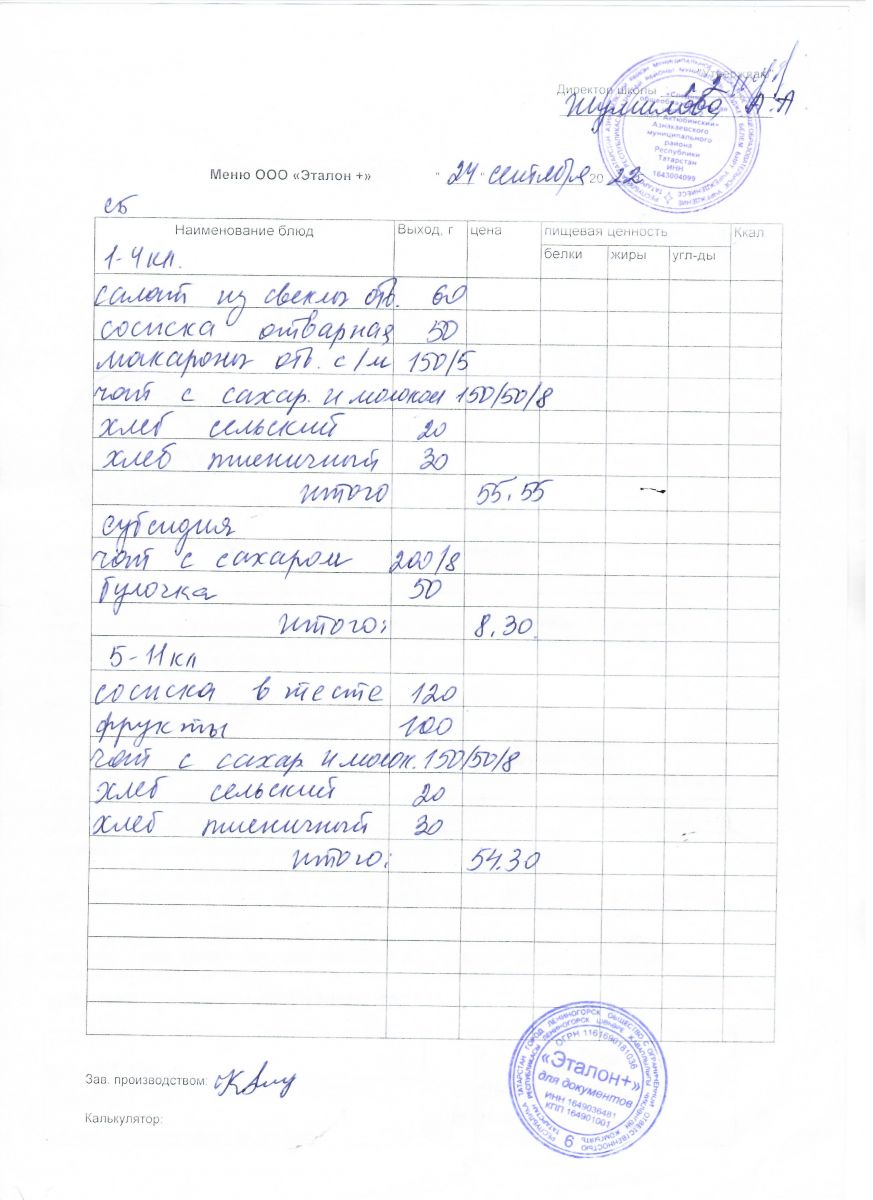 "Утверждаю"
Директор школы
Меню ООО «Эталон +» " 24 " сентября 20 22
сб
Наименование блюд Выход, г цена пищевая ценность Ккал
белки жиры угл-ды
1-4 кл.
салат из свеклы отв. 60
сосиска отварная 50
макароны отв. с/м 150/5
чай с сахар. и молоком 150/50/8
хлеб сельский 20
хлеб пшеничный 30
итого 55.55
субсидия
чай с сахаром 200/8
булочка 50
итого: 8.30
5-11 кл
сосиска в тесте 120
фрукты 100
чай с сахар и молок. 150/50/8
хлеб сельский 20
хлеб пшеничный 30
итого: 54.30
Зав. производством:
Калькулятор:
Актюбинский»
Азнакаевского
муниципального
района
Республики
Татарстан
ИНН
1643004099
ОГРН 1161690181036
«Эталон+»
для документов
ИНН 1649036481
КПП 164901001